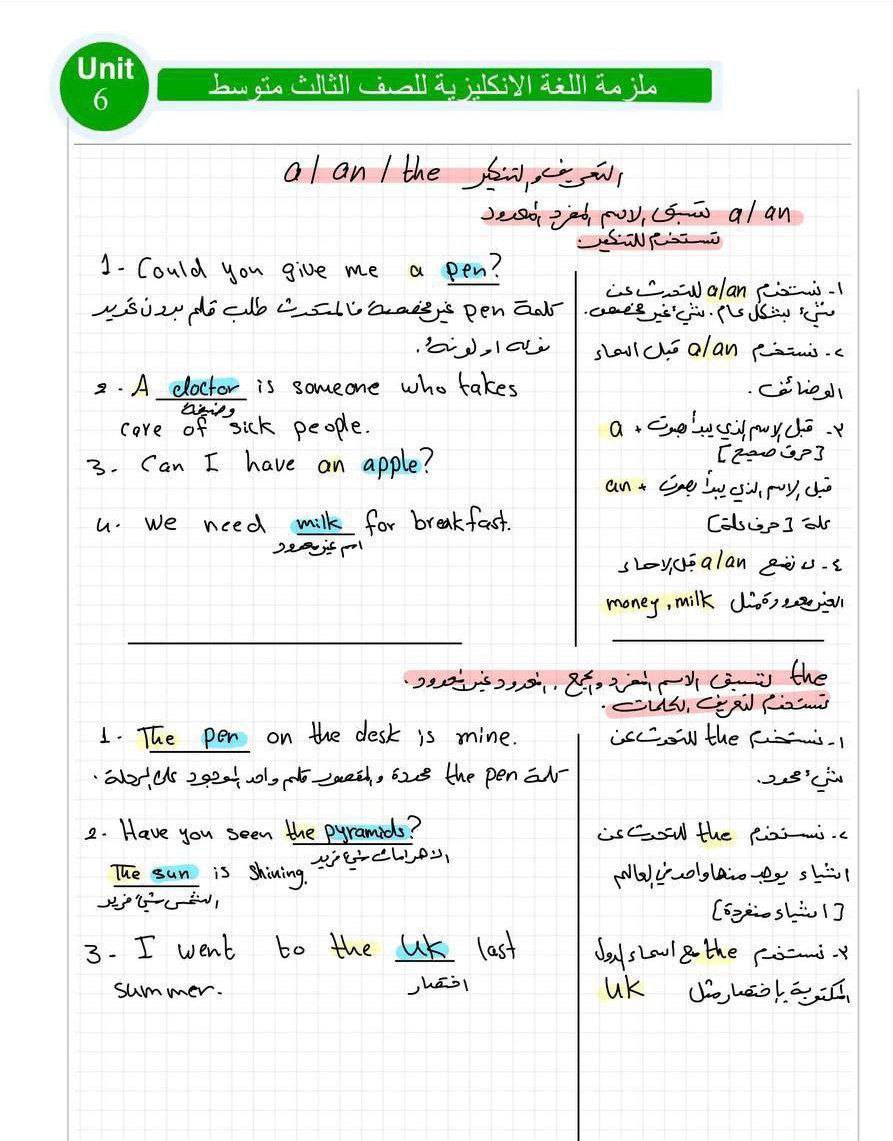 Unit
6
ملزمة اللغة الانكليزية للصف الثالث متوسط
التعريف والتنكير a / an / the
a / an تسبق الاسم المفرد المعدود
تستخدم للتنكير.
1- Could you give me a pen?
كلمة pen غير مخصصة فالمتحدث طلب قلم بدون تحديد
نوعه او لونه.
2. A doctor is someone who takes
وضيفة
care of sick people.
3. Can I have an apple?
4. We need milk for breakfast.
اسم غير معدود
١- نستخدم a/an للتحدث عن
شيء بشكل عام. شيء غير مخصص.
٢- نستخدم a/an قبل اسماء
الوضائف.
٣- قبل الاسم الذي يبدأ بصوت + a
[حرف صحيح]
قبل الاسم الذي يبدأ بصوت + an
علة [حرف علة]
٤- لا نضع a/an قبل الاسماء
الغير معدودة مثل money, milk
the تسبق الاسم المفرد والجمع، المعدود غير المعدود.
تستخدم لتعريف الكلمات.
1. The pen on the desk is mine.
كلمة the pen محددة والمقصود قلم واحد الموجود على الرحلة.
2. Have you seen the pyramids?
الاهرامات شيء فريد
The sun is shining.
الشمس شيء فريد
3- I went to the UK last
اختصار
summer.
١- نستخدم the للتحدث عن
شيء محدد.
٢- نستخدم the للتحدث عن
اشياء يوجد منها واحد في العالم
[اشياء منفردة]
٣- نستخدم the مع اسماء الدول
المكتوبة بإختصار مثل UK